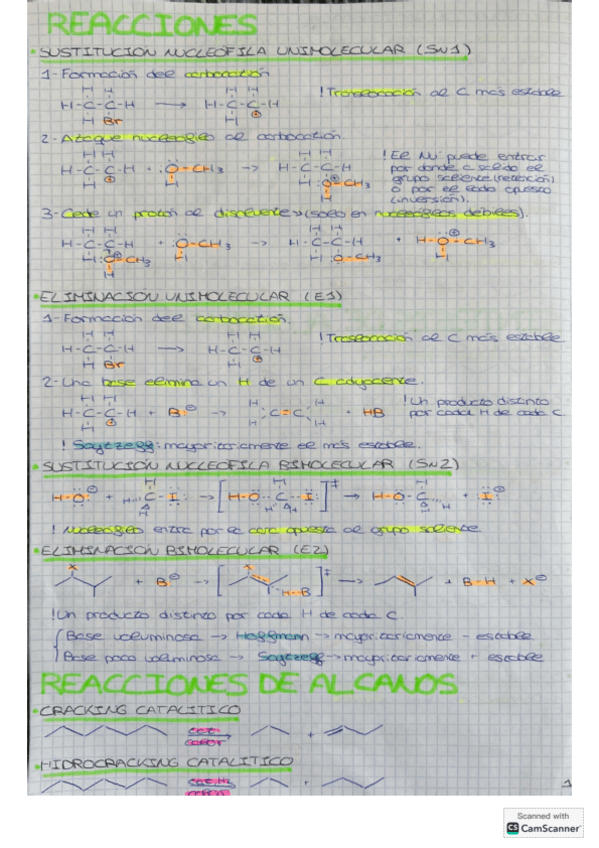 REACCIONES
• SUSTITUCION NUCLEOFILA UNIMOLECULAR (SN1)
1- Formación del carbocatión
H H H H
H-C-C-H → H-C-C-H ! Transposición al C más estable
H Br H ⊕
2- Ataque nucleofilico al carbocatión.
H H H H
H-C-C-H + :O-CH3 → H-C-C-H ! El Nu puede entrar
H ⊕ H H :O-CH3 por donde a salido el
H grupo saliente (retención)
o por el lado opuesto
(inversión).
3- Cede un protón al disolvente (solo en nucleofilos debiles).
H H H H
H-C-C-H + :O-CH3 → H-C-C-H + H-O-CH3
H :O-CH3 H H :O-CH3 H
H
• ELIMINACION UNIMOLECULAR (E1)
1- Formación del carbocatión.
H H H H ! Trasposición al C más estable
H-C-C-H → H-C-C-H
H Br H ⊕
2- Una base elimina un H de un C adyacente.
H H H H ! Un producto distinto
H-C-C-H + B⊖ → C=C + HB por cada H de cada C.
H ⊕ H H
! Saytzeff: mayoritariamente el más estable.
• SUSTITUCIÓN NUCLEOFILA BIMOLECULAR (SN2)
H-O:⊖ + H C-I: → [H-O··C··I:]‡ → H-O-C + :I:⊖
! Nucleofilo entra por el cara opuesta al grupo saliente.
• ELIMINACION BIMOLECULAR (E2)
X X
+ B⊖ → [ H-B ]‡ → + B-H + X⊖
! Un producto distinto por cada H de cada C.
Base voluminosa → Hoffmann → mayoritariamente - estable
Base poco voluminosa → Saytzeff → mayoritariamente + estable
REACCIONES DE ALCANOS
• CRACKING CATALITICO
cat.
calor +
• HIDROCRACKING CATALITICO
cat. H2
calor +
1
Scanned with
CS CamScanner